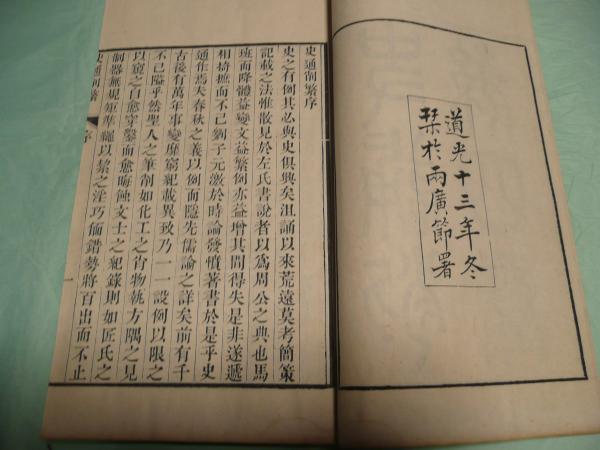 道光十三年冬
栞於兩廣節署
史通削繁序
史之有例其必與史俱興矣沮誦以來荒遠莫考簡策
記載之法惟散見於左氏書說者以爲周公之典也馬
班而降體益變文益繁例亦益增其間得失是非遂遞
相掎摭而不已劉子元激於時論發憤著書於是乎史
通作焉夫春秋之義以例而隱先儒論之詳矣前有千
古後有萬年事變靡窮紀載異致乃一一設例以限之
不已隘乎然聖人之筆削如化工之肖物執方隅之見
以窺之自愈穿鑿而愈晦蝕文士之紀錄則如匠氏之
制器無規矩準繩以絜之淫巧偭錯勢將百出而不止
史通削繁 序 一